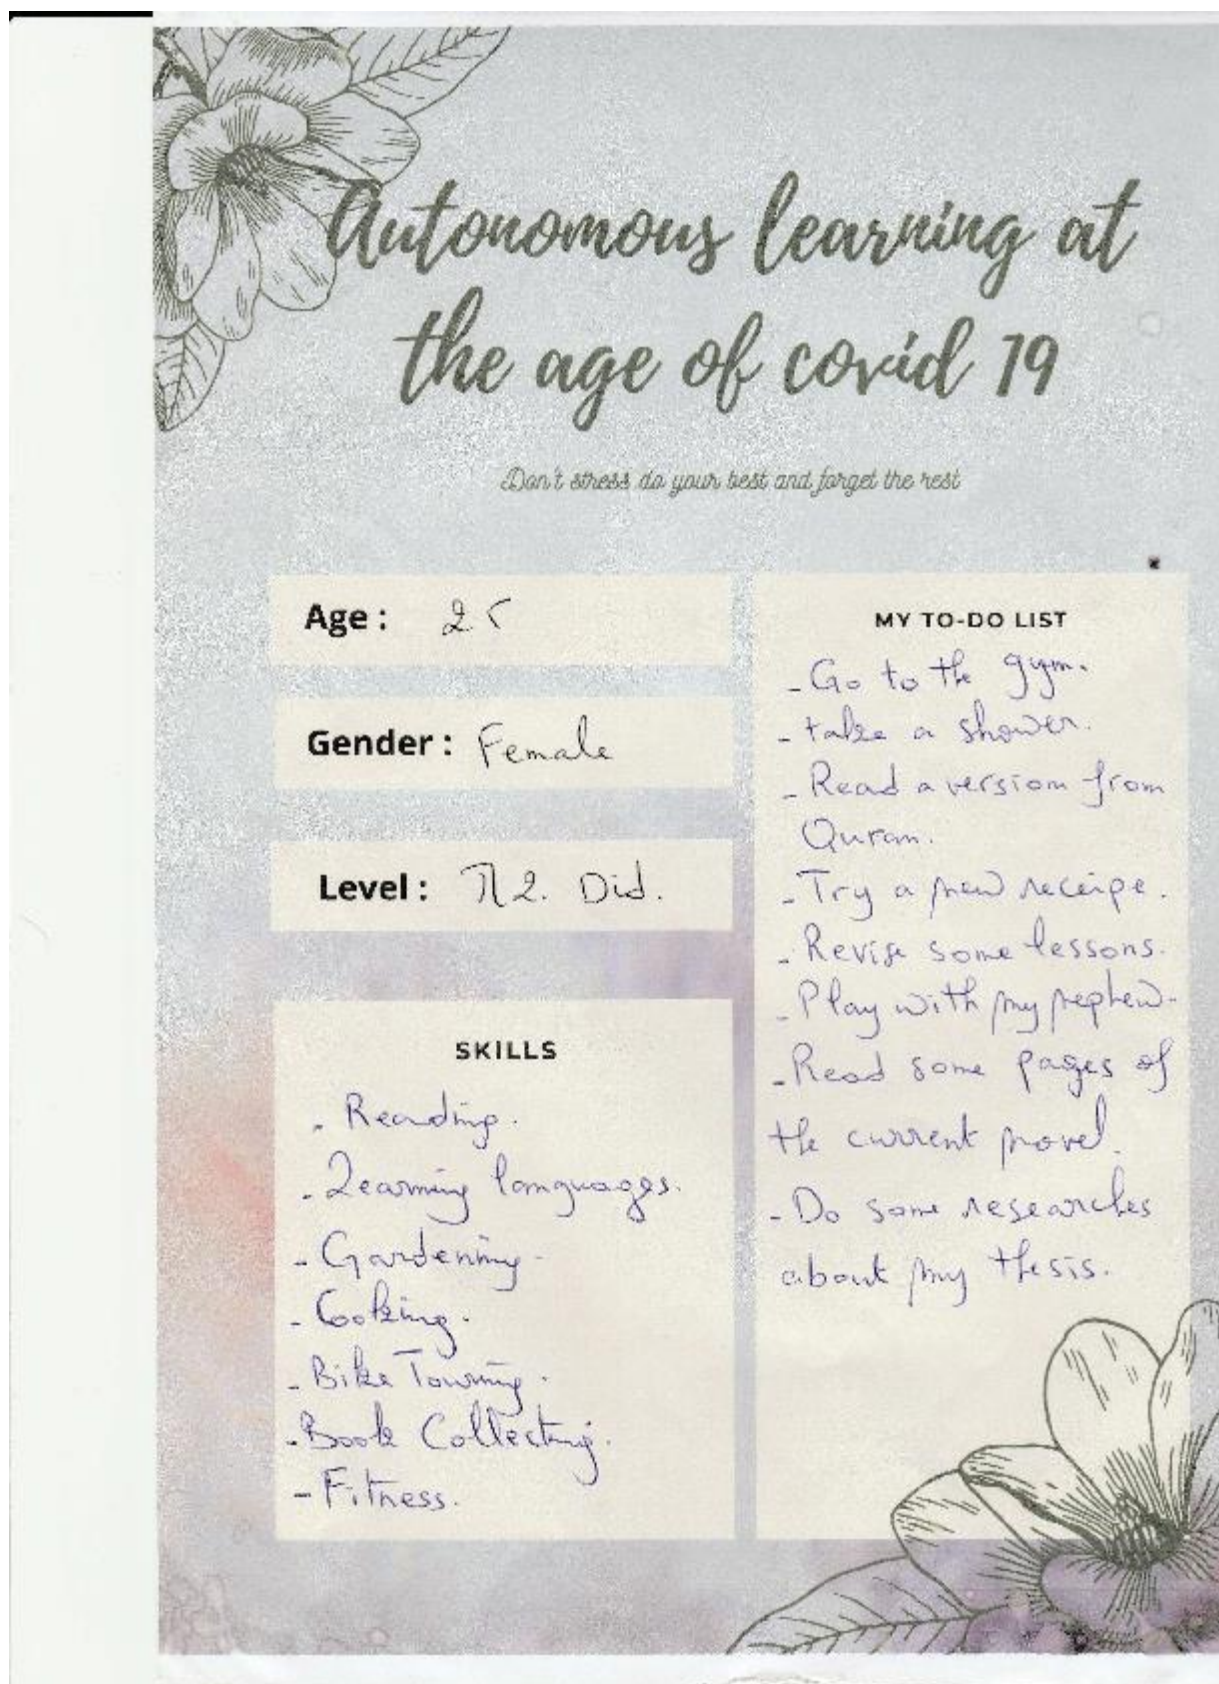 Autonomous learning at
the age of covid 19
Don't stress do your best and forget the rest
Age : 25
Gender : Female
Level : M2. Did.
SKILLS
- Reading.
- Learning languages.
- Gardening.
- Cooking.
- Bike Touring.
- Book Collecting.
- Fitness.
MY TO-DO LIST
- Go to the gym.
- take a shower.
- Read a version from
Quran.
- Try a new receipe.
- Revise some lessons.
- Play with my nephew.
- Read some pages of
the current novel.
- Do some researches
about my thesis.